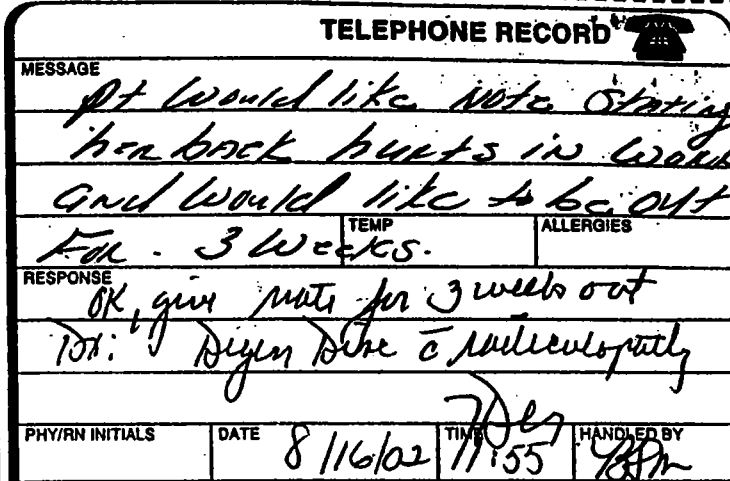 TELEPHONE RECORD
MESSAGE
pt would like note stating
her back hurts in work
and would like to be out
For 3 weeks.
TEMP
ALLERGIES
RESPONSE
OK, give note for 3 weeks out
Dx: Degen Disc c̄ radiculopathy
PHY/RN INITIALS
DATE 8/16/02
TIME 11:55
HANDLED BY